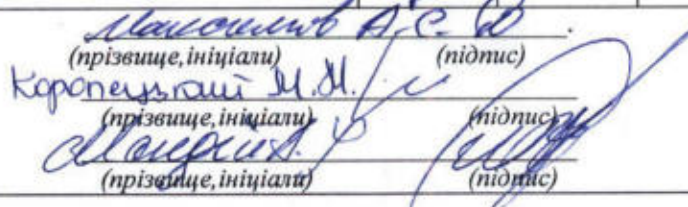 Максимов А.С.
(прізвище,ініціали) (підпис)
Коропецький М.М.
(прізвище,ініціали) (підпис)
(прізвище,ініціали) (підпис)